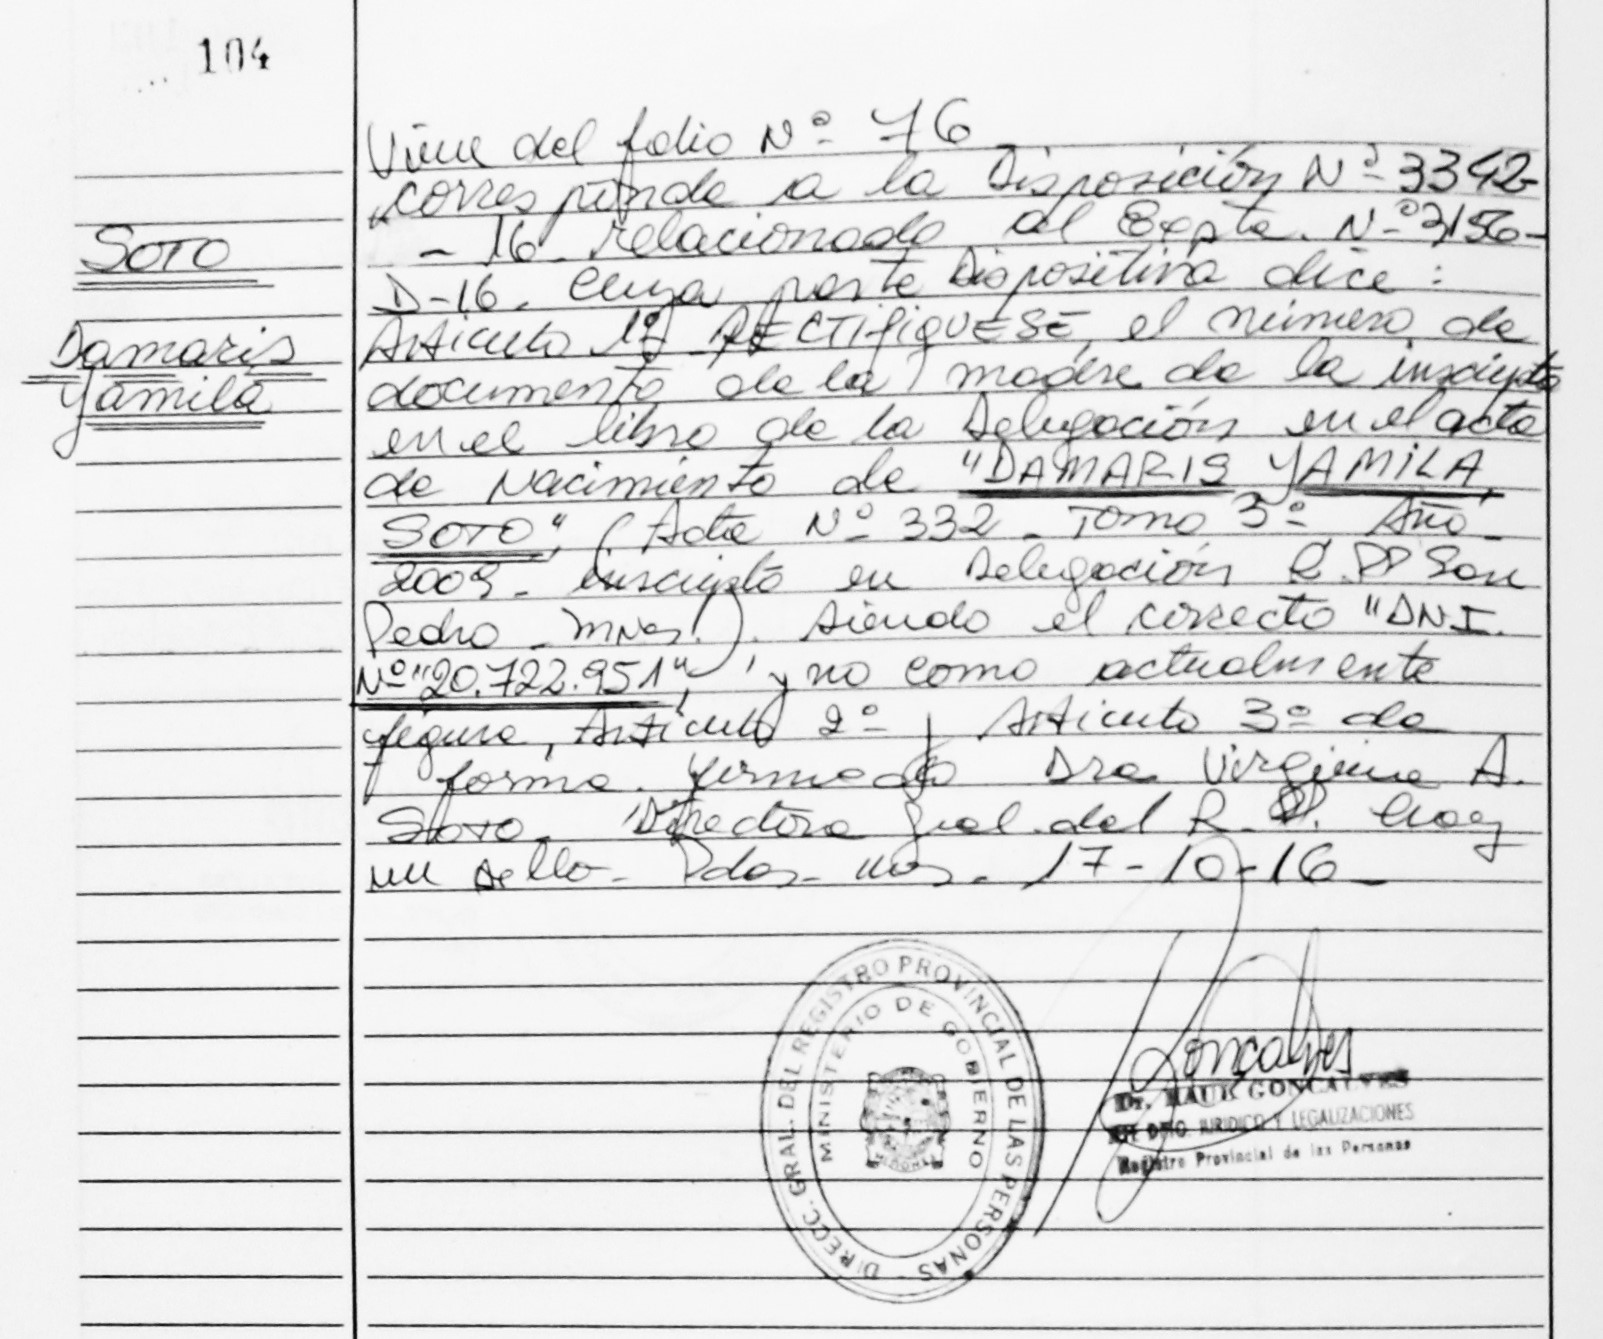 104
SOTO
Damaris
Yamila
Viene del folio Nº 76
corresponde a la Disposición Nº 3342-
- 16 relacionado al Expte. Nº 3156-
D-16. Cuya parte Dispositiva dice:
Artículo 1º RECTIFIQUESE, el número de
documento de la madre de la inscripta
en el libro de la Delegación en el acta
de Nacimiento de "DAMARIS YAMILA
SOTO", (Acta Nº 332 - Tomo 3º - Año
2009 - inscripto en Delegación R.PP San
Pedro - Mnes.). siendo el correcto "DNI.
Nº "20.722.951", y no como actualmente
figura, Artículo 2º y Artículo 3º de
forma. firmado Dra Virginia A.
Soto. Directora Gral. del R.P. Hay
un sello - Pdas - Mnes. 17-10-16 -
DIRECC. GRAL. DEL REGISTRO PROVINCIAL DE LAS PERSONAS
MINISTERIO DE GOBIERNO
MISIONES
Goncalves
Dr. RAUL GONCALVES
DTO. JURIDICO Y LEGALIZACIONES
Registro Provincial de las Personas